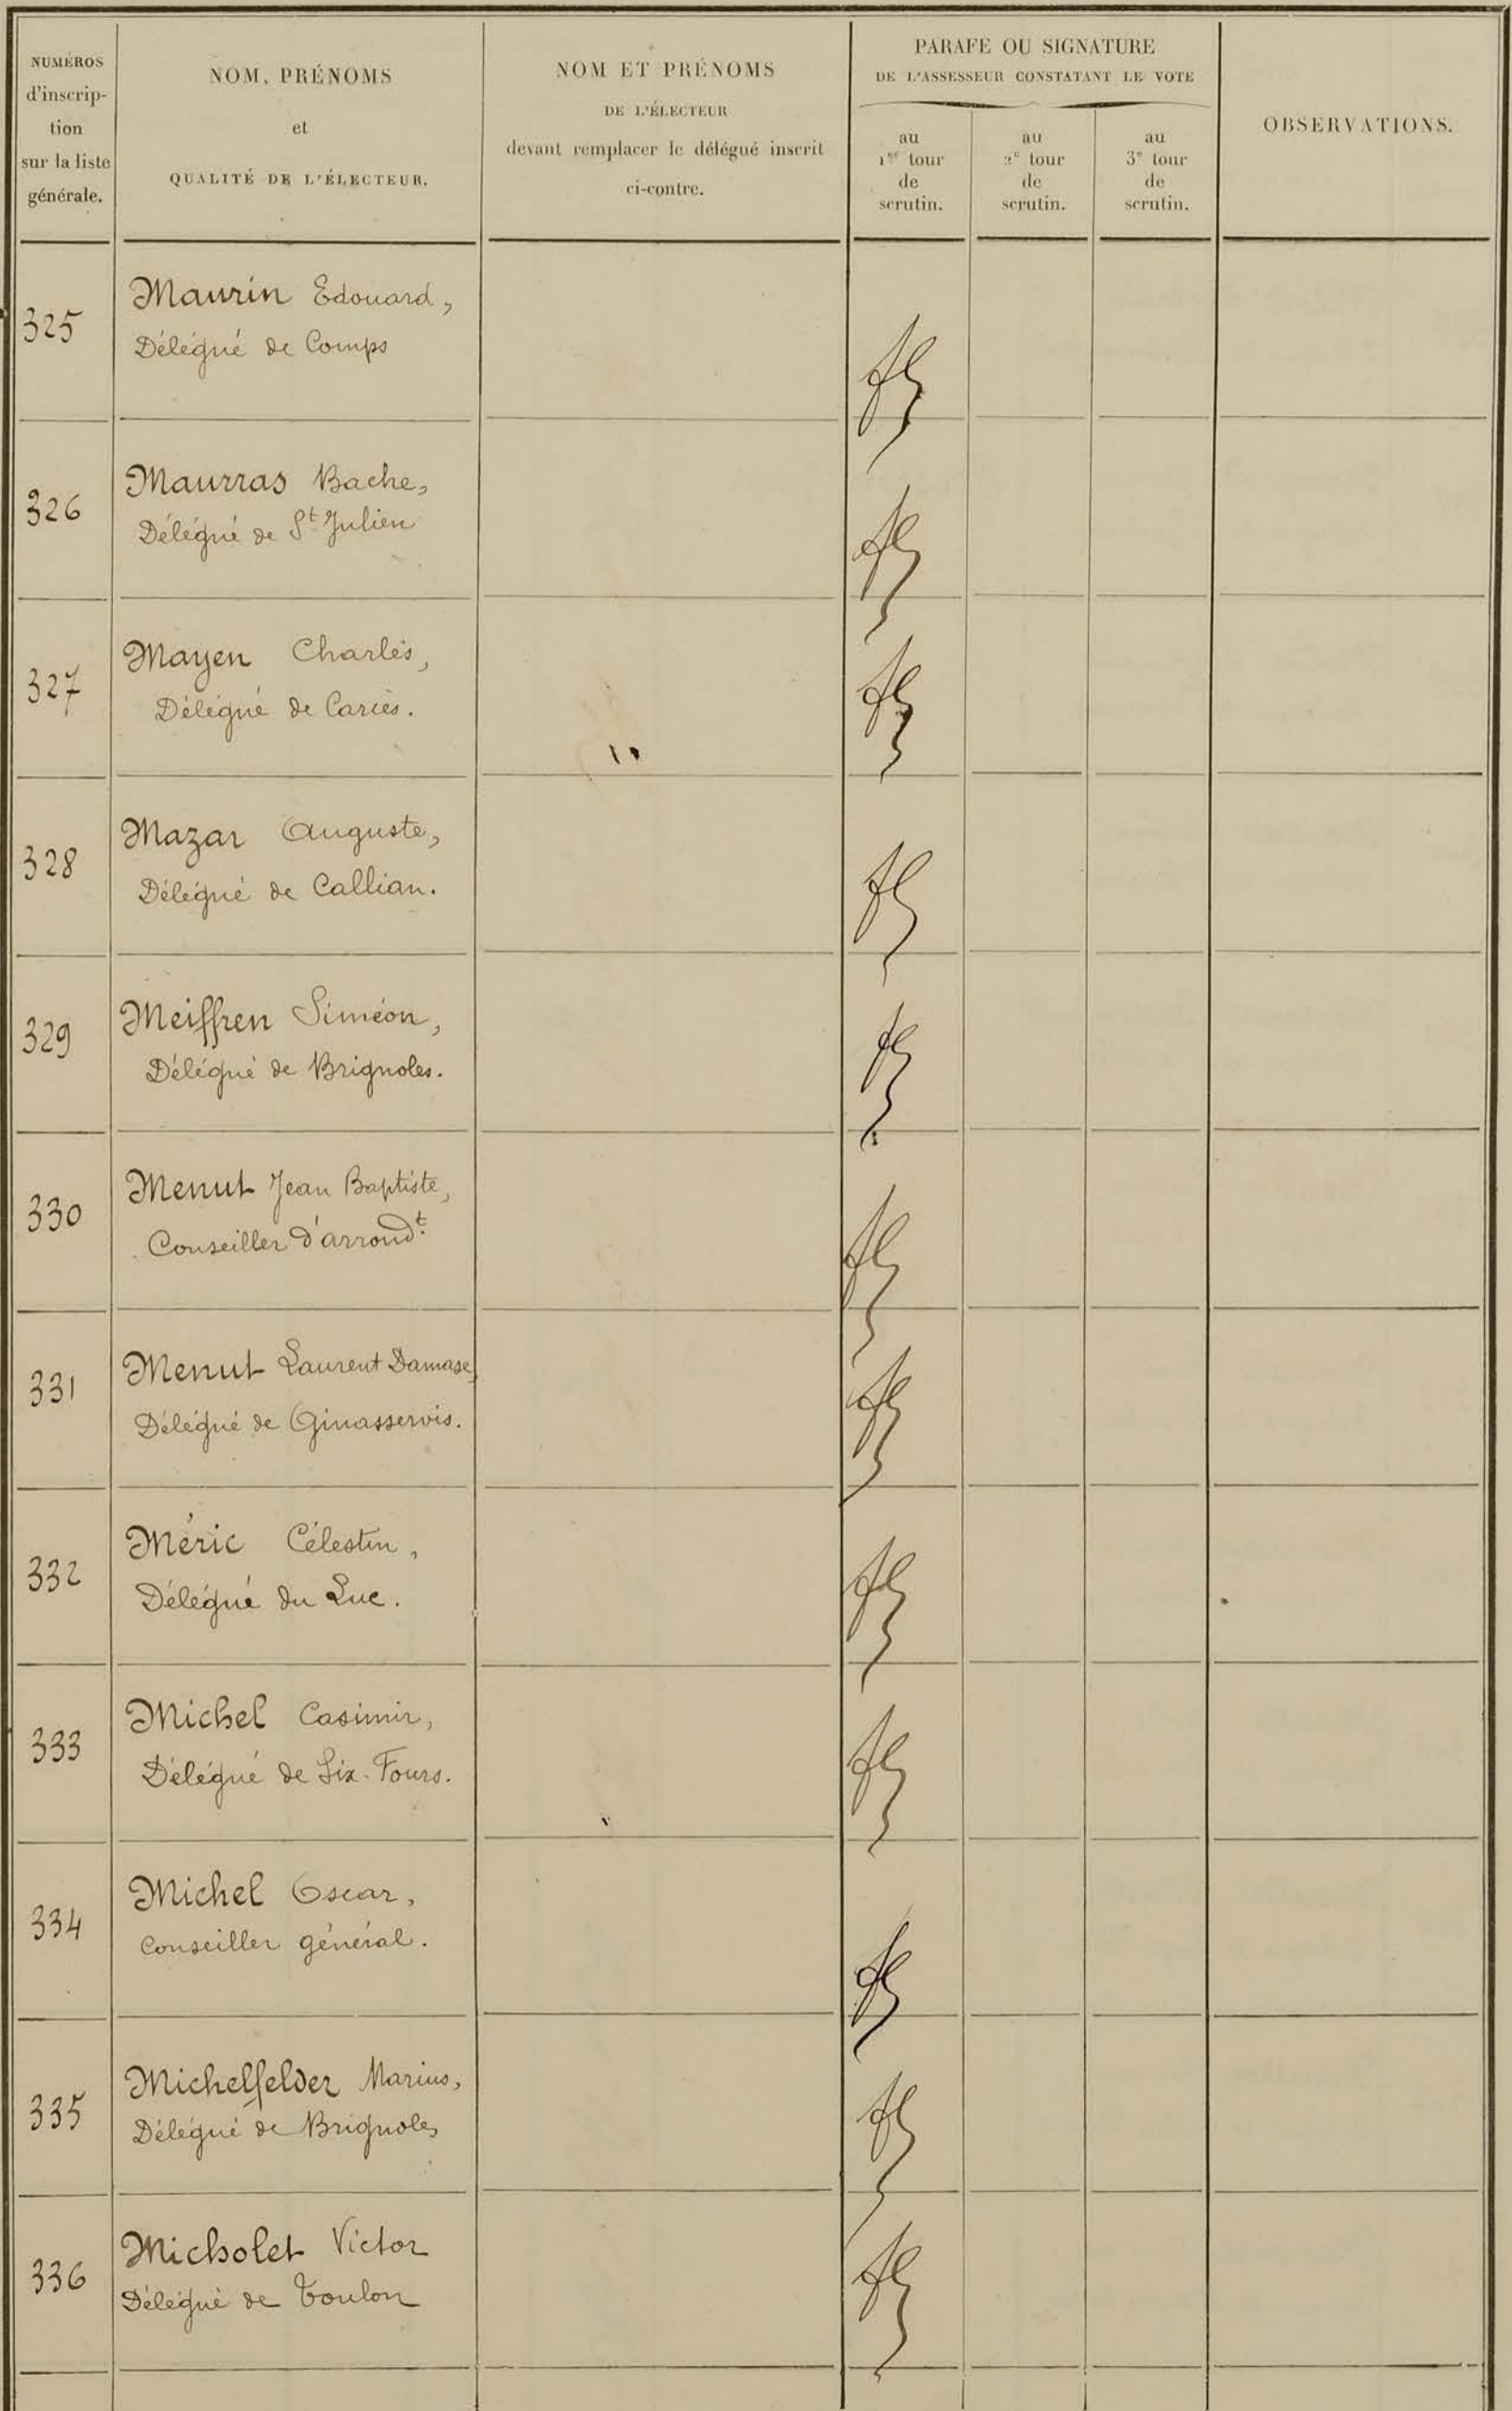 NUMÉROS
d'inscrip-
tion
sur la liste
générale.
NOM, PRÉNOMS
et
QUALITÉ DE L'ÉLECTEUR.
NOM ET PRÉNOMS
DE L'ÉLECTEUR
devant remplacer le délégué inscrit
ci-contre.
PARAFE OU SIGNATURE
DE L'ASSESSEUR CONSTATANT LE VOTE
au
1er tour
de
scrutin.
au
2e tour
de
scrutin.
au
3e tour
de
scrutin.
OBSERVATIONS.
325
Maurin Edouard,
Délégué de Comps
326
Maurras Bache,
Délégué de St Julien
327
Mayen Charles,
Délégué de Carcès.
328
Mazar Auguste,
Délégué de Callian.
329
Meiffren Siméon,
Délégué de Brignoles.
330
Menut Jean Baptiste,
Conseiller d'arrondt.
331
Menut Laurent Damase,
Délégué de Ginasservis.
332
Méric Célestin,
Délégué du Luc.
333
Michel Casimir,
Délégué de Six-Fours.
334
Michel Oscar,
Conseiller général.
335
Michelfelder Marius,
Délégué de Brignoles
336
Micholet Victor
Délégué de Toulon